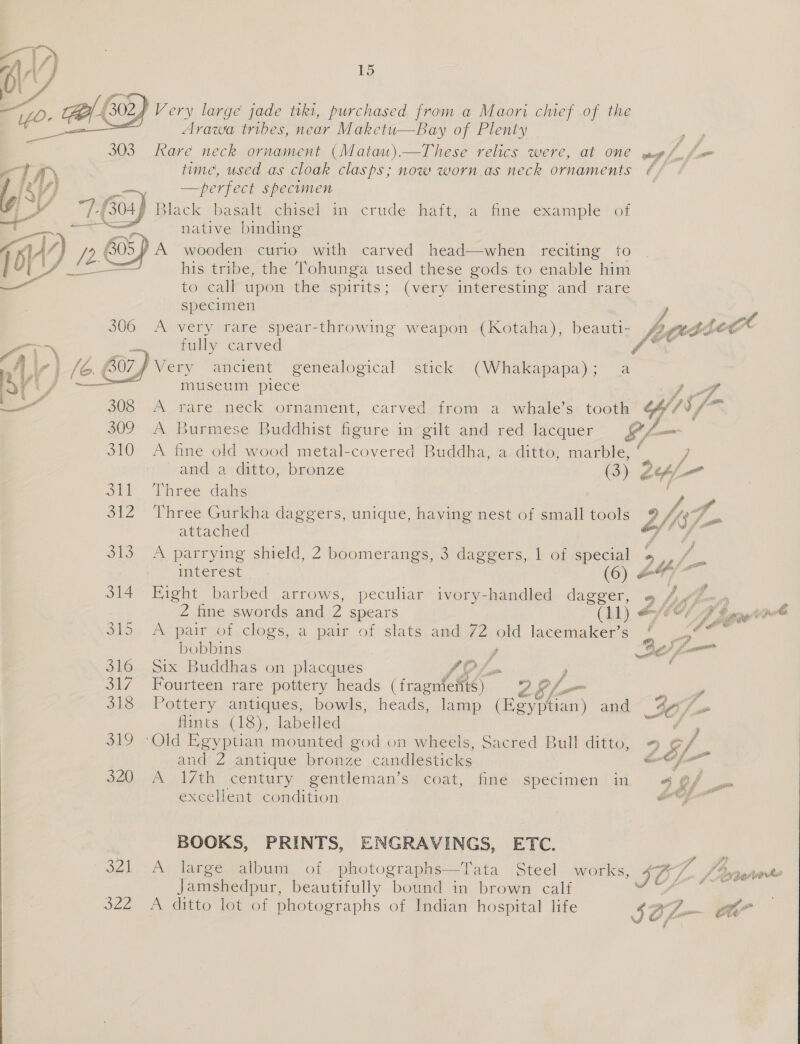 15
302 Very large jade tiki, purchased from a Maori chief of the
Arawa tribes, near Maketu—Bay of Plenty
303 Rare neck ornament (Matau).—These relics were, at one
time, used as cloak clasps; now worn as neck ornaments
—perfect specimen
304 Black basalt chisel in crude haft, a fine example of
native binding
305 A wooden curio with carved head—when reciting to
his tribe, the Tohunga used these gods to enable him
to call upon the spirits; (very interesting and rare
specimen
306 A very rare spear-throwing weapon (Kotaha), beauti-
fully carved
307 Very ancient genealogical stick (Whakapapa); a
museum piece
308 A rare neck ornament, carved from a whale's tooth
309 A Burmese Buddhist figure in gilt and red lacquer
310 A fine old wood metal-covered Buddha, a ditto, marble,
and a ditto, bronze (3)
311 Three dahs
312 Three Gurkha daggers, unique, having nest of small tools
attached
313 A parrying shield, 2 boomerangs, 3 daggers, 1 of special
interest (6)
314 Eight barbed arrows, peculiar ivory-handled dagger,
2 fine swords and 2 spears (11)
315 A pair of clogs, a pair of slats and 72 old lacemaker's
bobbins
316 Six Buddhas on placques
317 Fourteen rare pottery heads (fragments)
318 Pottery antiques, bowls, heads, lamp (Egyptian) and
flints (18), labelled
319 Old Egyptian mounted god on wheels, Sacred Bull ditto,
and 2 antique bronze candlesticks
320 A 17th century gentleman's coat, fine specimen in
excellent condition
BOOKS, PRINTS, ENGRAVINGS, ETC.
321 A large album of photographs—Tata Steel works,
Jamshedpur, beautifully bound in brown calf
322 A ditto lot of photographs of Indian hospital life